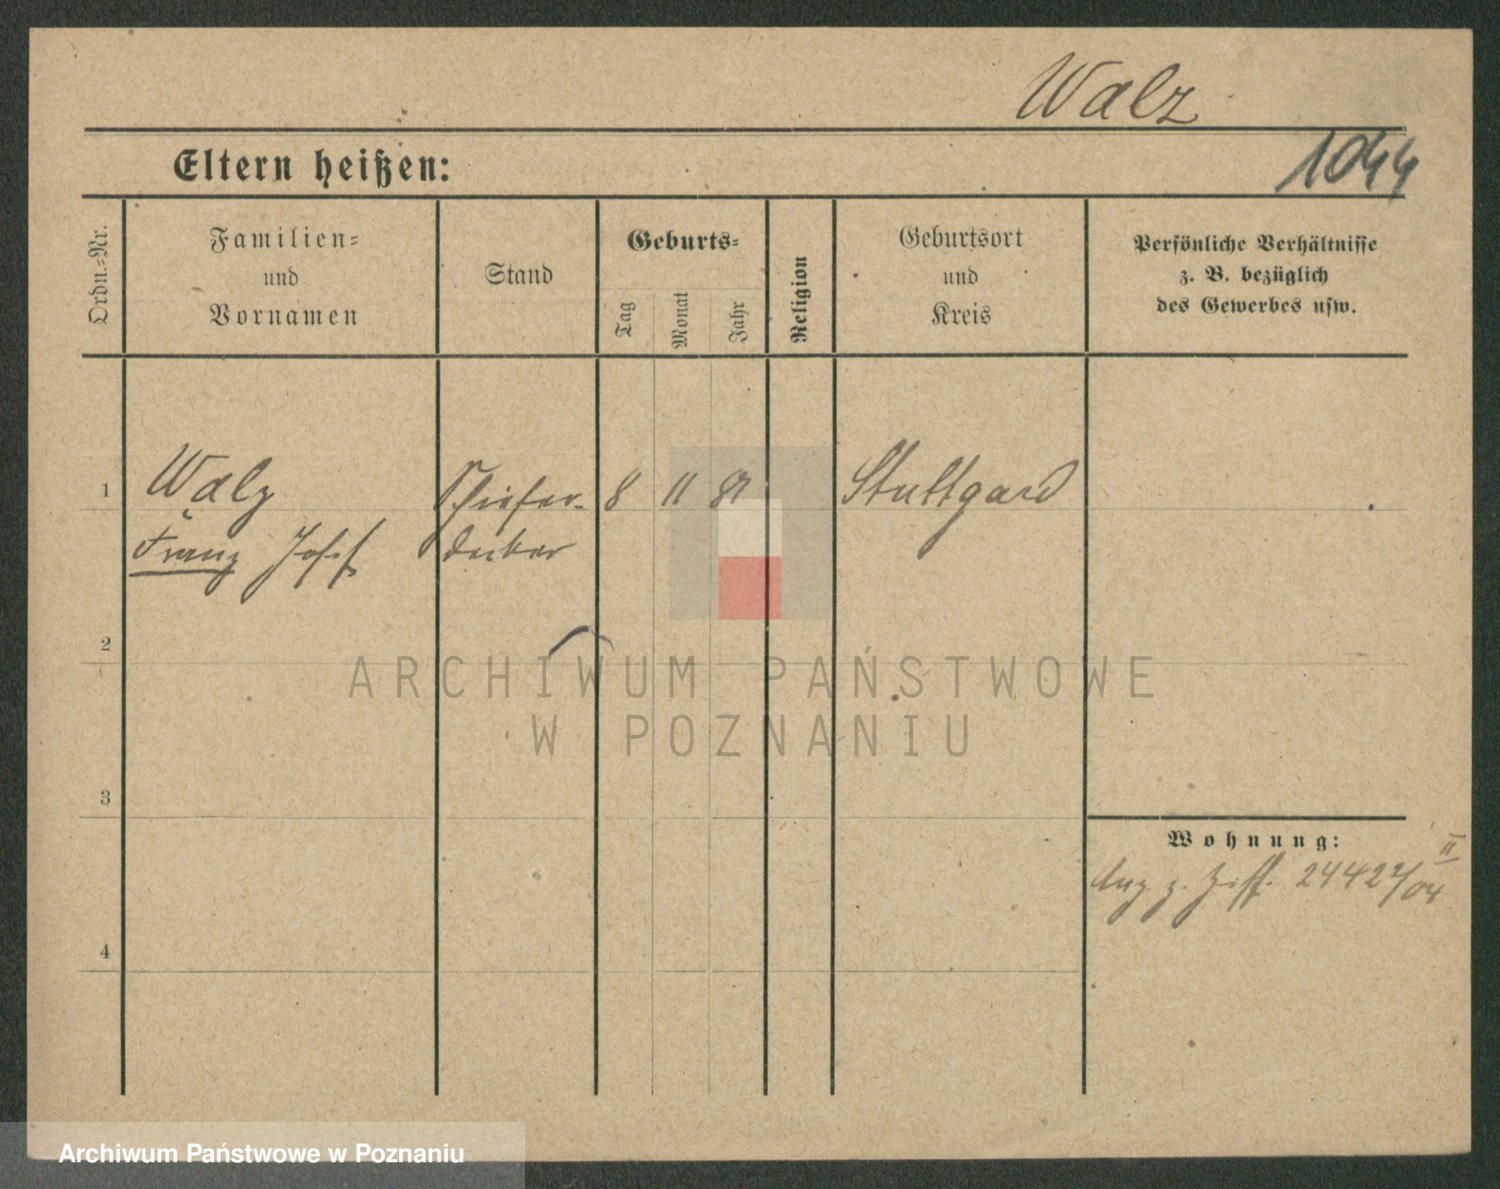 Walz
Eltern heißen:
1044
Ordn.=Nr.
Familien=
und
Vornamen
Stand
Geburts=
Tag
Monat
Jahr
Religion
Geburtsort
und
Kreis
Persönliche Verhältnisse
z. B. bezüglich
des Gewerbes usw.
1
Walz
Franz Josef
Schiefer-
decker
8 11 81
Stuttgard
2
ARCHIWUM PAŃSTWOWE
W POZNANIU
3
Wohnung:
II
z. Ziff. 24427/04
4
Archiwum Państwowe w Poznaniu